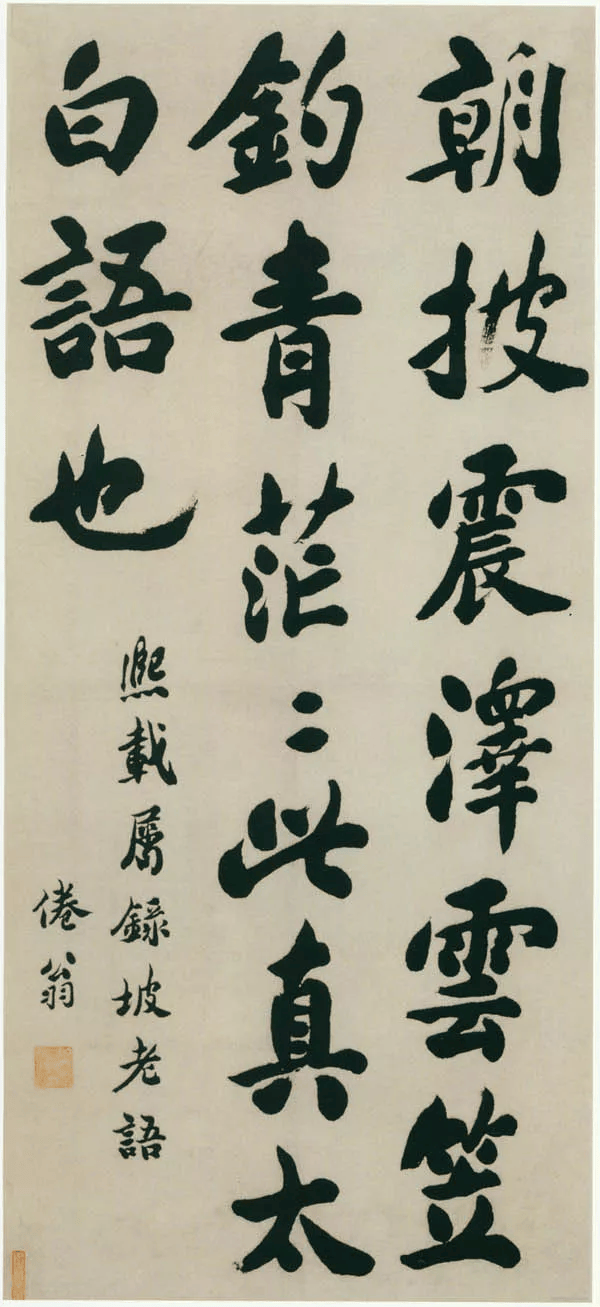 朝披震澤雲笠
釣青茫〻此真太
白語也
熙載屬錄坡老語
倦翁